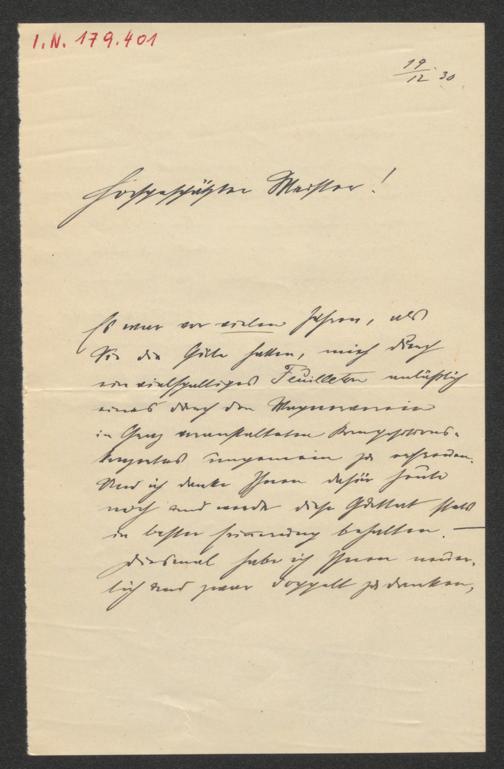 I.N. 179.401
19/12 30
Hochgeschätzter Meister!
Es war vor vielen Jahren, als
Sie die Güte hatten, mich durch
ein vielspaltiges Feuilleton anläßlich
eines durch den Wagnerverein
in Graz veranstalteten Kompositions-
konzertes ungemein zu erfreuen.
Und ich danke Ihnen dafür heute
noch und werde diese Guttat stets
in bester Erinnerung behalten. —
Diesmal habe ich Ihnen neuer-
lich und zwar doppelt zu danken,